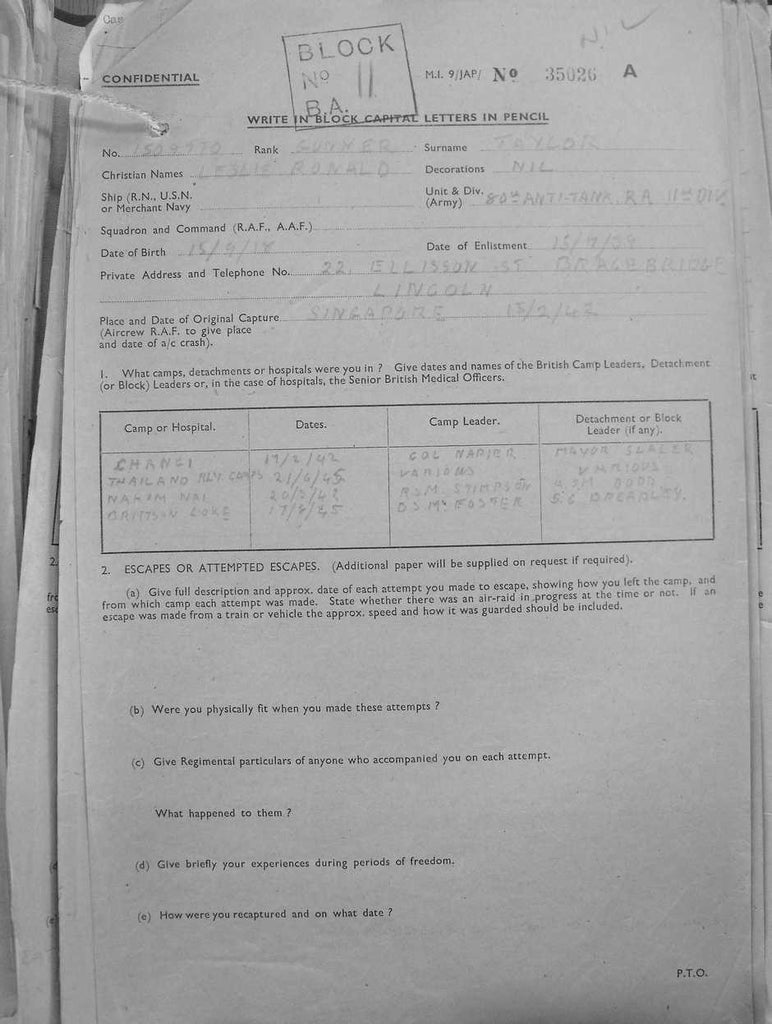 Cas
NIL
BLOCK
No 11
B.A.
CONFIDENTIAL
M.I. 9/JAP/ No 35026 A
WRITE IN BLOCK CAPITAL LETTERS IN PENCIL
No. Rank GUNNER Surname TAYLOR
Christian Names LESLIE RONALD Decorations NIL
Ship (R.N., U.S.N. or Merchant Navy
Unit & Div. (Army) 80th ANTI-TANK RA 11th DIV
Squadron and Command (R.A.F., A.A.F.)
Date of Birth 15/9/18 Date of Enlistment 15/7/39
Private Address and Telephone No. 22, ELLISSON ST BRACEBRIDGE
LINCOLN
Place and Date of Original Capture SINGAPORE 15/2/42
(Aircrew R.A.F. to give place
and date of a/c crash).
1. What camps, detachments or hospitals were you in ? Give dates and names of the British Camp Leaders, Detachment
(or Block) Leaders or, in the case of hospitals, the Senior British Medical Officers.
Camp or Hospital. Dates. Camp Leader. Detachment or Block Leader (if any).
CHANGI 17/2/42 COL NAPIER MAYOR
THAILAND RLY CAMPS 21/6/45 VARIOUS VARIOUS
RSM STIMPSON
17/8/45 FOSTER
2. ESCAPES OR ATTEMPTED ESCAPES. (Additional paper will be supplied on request if required).
(a) Give full description and approx. date of each attempt you made to escape, showing how you left the camp, and
from which camp each attempt was made. State whether there was an air-raid in progress at the time or not. If an
escape was made from a train or vehicle the approx. speed and how it was guarded should be included.
(b) Were you physically fit when you made these attempts ?
(c) Give Regimental particulars of anyone who accompanied you on each attempt.
What happened to them ?
(d) Give briefly your experiences during periods of freedom.
(e) How were you recaptured and on what date ?
P.T.O.